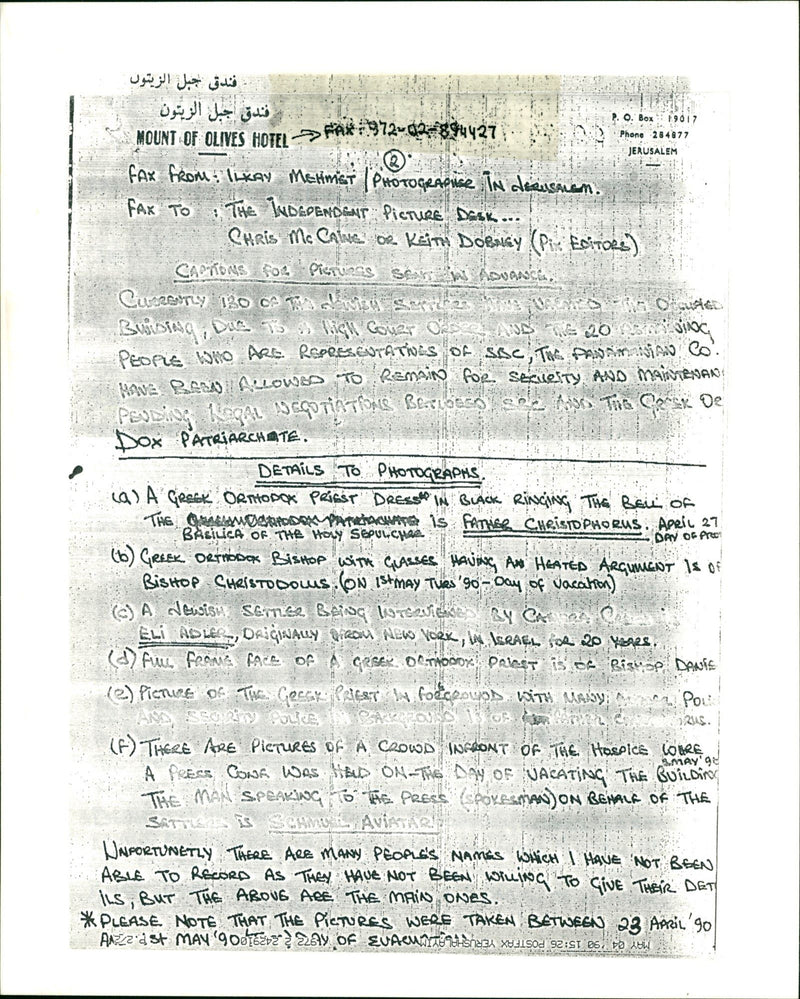 فندق جبل الزيتون
فندق جبل الزيتون
MOUNT OF OLIVES HOTEL → FAX: 972-02-894427
P. O. Box 19017
Phone 284877
JERUSALEM
②
FAX FROM: ILKAY MEHMET / PHOTOGRAPHER IN JERUSALEM.
FAX TO : THE INDEPENDENT PICTURE DESK...
CHRIS MCCAINE OR KEITH DOBNEY (Pix EDITORS)
CAPTIONS FOR PICTURES SENT IN ADVANCE.
CURRENTLY 130 OF THE JEWISH SETTLERS HAVE VACATED THE OCCUPIED
BUILDING, DUE TO A HIGH COURT ORDER AND THE 20 REMAINING
PEOPLE WHO ARE REPRESENTATIVES OF SBC, THE PANAMANIAN CO.
HAVE BEEN ALLOWED TO REMAIN FOR SECURITY AND MAINTENAN
PENDING LEGAL NEGOTIATIONS BETWEEN SBC AND THE GREEK OR
DOX PATRIARCHATE.
DETAILS TO PHOTOGRAPHS.
(a) A GREEK ORTHODOX PRIEST DRESS IN BLACK RINGING THE BELL OF
THE IS FATHER CHRISTOPHORUS. APRIL 27
BASILICA OF THE HOLY SEPULCHRE DAY OF PRO
(b) GREEK ORTHODOX BISHOP WITH GLASSES HAVING AN HEATED ARGUMENT IS OF
BISHOP CHRISTODOLUS. (ON 1st MAY TUES '90 - Day of vacation)
(c) A JEWISH SETTLER BEING INTERVIEWED BY CAMERA
ELI ADLER, ORIGINALLY FROM NEW YORK, IN ISRAEL FOR 20 YEARS.
(d) FULL FRAME FACE OF A GREEK ORTHODOX PRIEST IS OF BISHOP DANIE
(e) PICTURE OF THE GREEK PRIEST IN FOREGROUND WITH MANY POLI
AND SECURITY POLICE IN BACKGROUND IS OF
(F) THERE ARE PICTURES OF A CROWD INFRONT OF THE HOSPICE WHERE
A PRESS CONF WAS HELD ON THE DAY OF VACATING THE BUILDING
MAY '90
THE MAN SPEAKING TO THE PRESS (SPOKESMAN) ON BEHALF OF THE
SETTLERS IS SCHMUEL AVIATAR
UNFORTUNETLY THERE ARE MANY PEOPLE'S NAMES WHICH I HAVE NOT BEEN
ABLE TO RECORD AS THEY HAVE NOT BEEN WILLING TO GIVE THEIR DET
ILS, BUT THE ABOVE ARE THE MAIN ONES.
* PLEASE NOTE THAT THE PICTURES WERE TAKEN BETWEEN 23 APRIL '90
AND 1st MAY '90 DAY OF EVACUATION
MAY 04 '90 15:26 POSTFAX YERUSHALAYIM